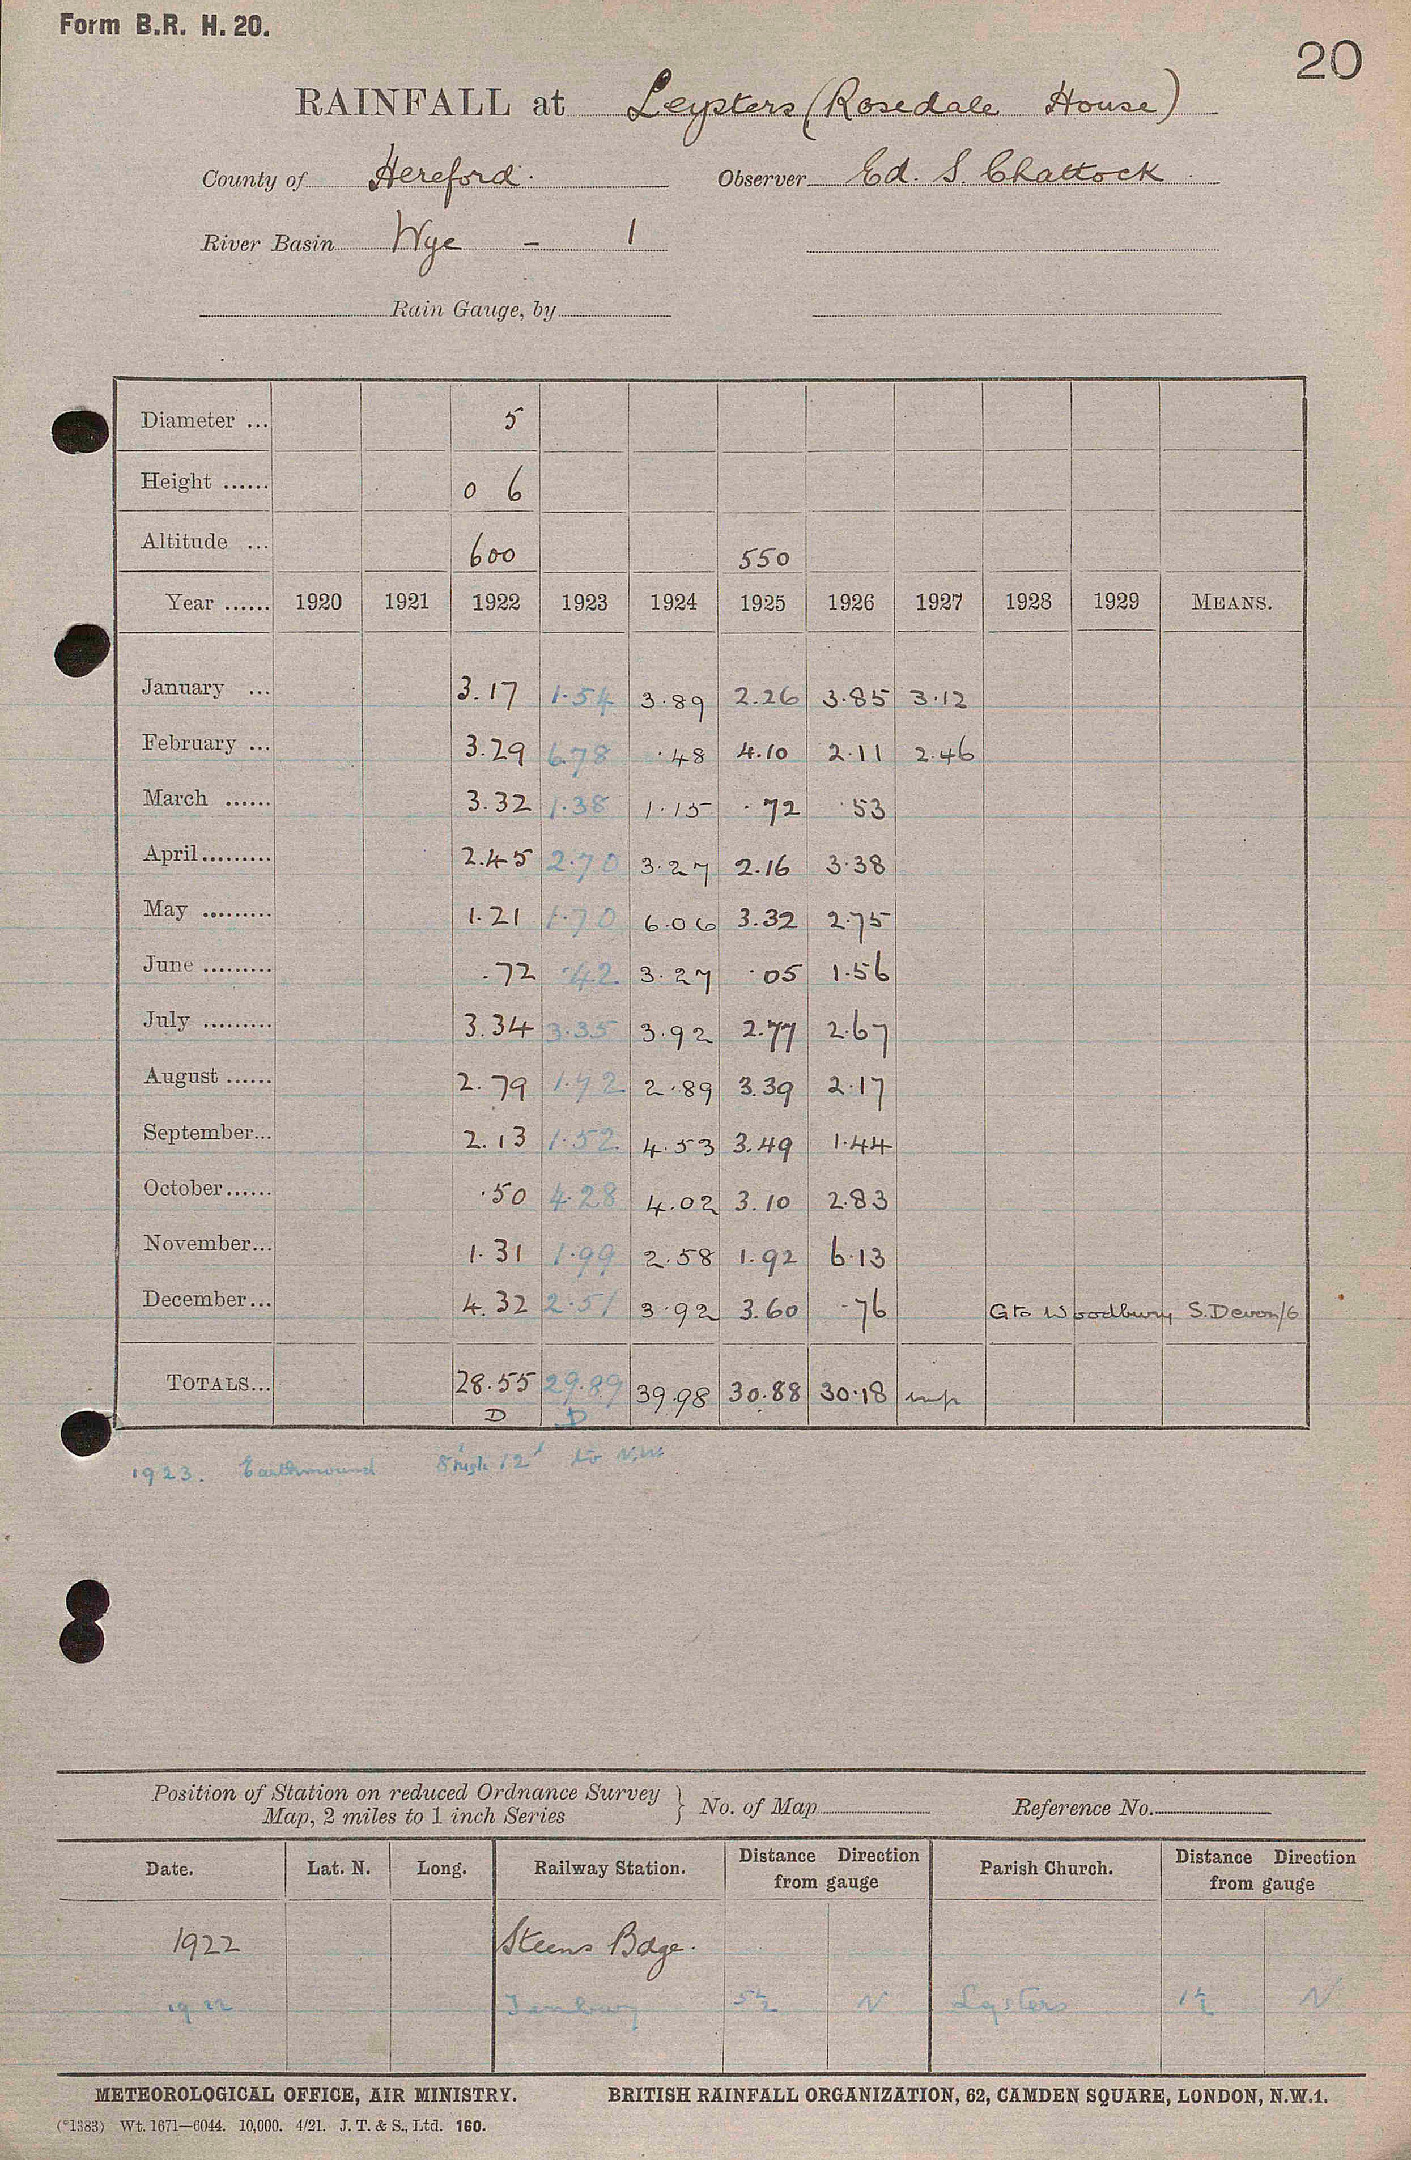 Form B.R. H. 20.
20
RAINFALL at Leysters (Rosedale House)
County of Hereford. Observer Ed. S. Chattock
River Basin Wye - 1
Rain Gauge, by
Diameter ... 5
Height ...... 0 6
Altitude ... 600 550
Year ...... 1920 1921 1922 1923 1924 1925 1926 1927 1928 1929 MEANS.
January ... 3.17 1.54 3.89 2.26 3.85 3.12
February ... 3.29 6.78 .48 4.10 2.11 2.46
March ...... 3.32 1.38 1.15 .72 .53
April......... 2.45 2.70 3.27 2.16 3.38
May ......... 1.21 1.70 6.06 3.32 2.75
June ......... .72 .42 3.27 .05 1.56
July ......... 3.34 3.35 3.92 2.77 2.67
August ...... 2.79 1.92 2.89 3.39 2.17
September... 2.13 1.52 4.53 3.49 1.44
October...... .50 4.28 4.02 3.10 2.83
November... 1.31 1.99 2.58 1.92 6.13
December... 4.32 2.51 3.92 3.60 .76 G to Woodbury S. Devon/6
TOTALS... 28.55 29.89 39.98 30.88 30.18 imp
D D
1923. Earthmound 8' high 12' to N.W.
Position of Station on reduced Ordnance Survey
Map, 2 miles to 1 inch Series } No. of Map Reference No.
Date. Lat. N. Long. Railway Station. Distance Direction from gauge Parish Church. Distance Direction from gauge
1922 Steens Bdge.
1922 Tenbury 5½ N Leysters 1½ N
METEOROLOGICAL OFFICE, AIR MINISTRY. BRITISH RAINFALL ORGANIZATION, 62, CAMDEN SQUARE, LONDON, N.W.1.
(*1383) Wt. 1671—6044. 10,000. 4/21. J. T. & S., Ltd. 160.